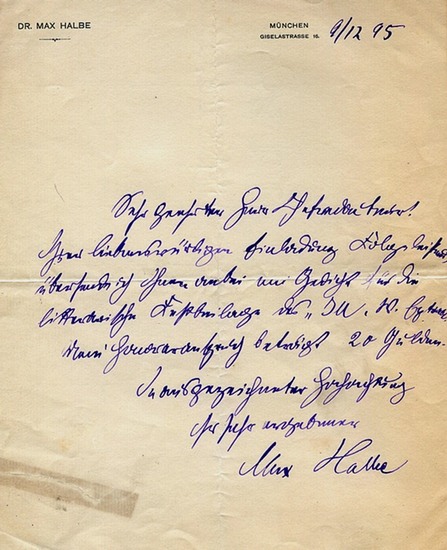 DR. MAX HALBE
MÜNCHEN
GISELASTRASSE 16.
9/12 95
Sehr geehrter Herr Chefredakteur!
Ihrer liebenswürdigen Einladung Folge leistend
übersende ich Ihnen anbei ein Gedicht für die
litterarische Festbeilage des "
Mein Honoraranspruch beträgt 20 Gulden.
In ausgezeichneter Hochachtung
Ihr sehr ergebener
Max Halbe